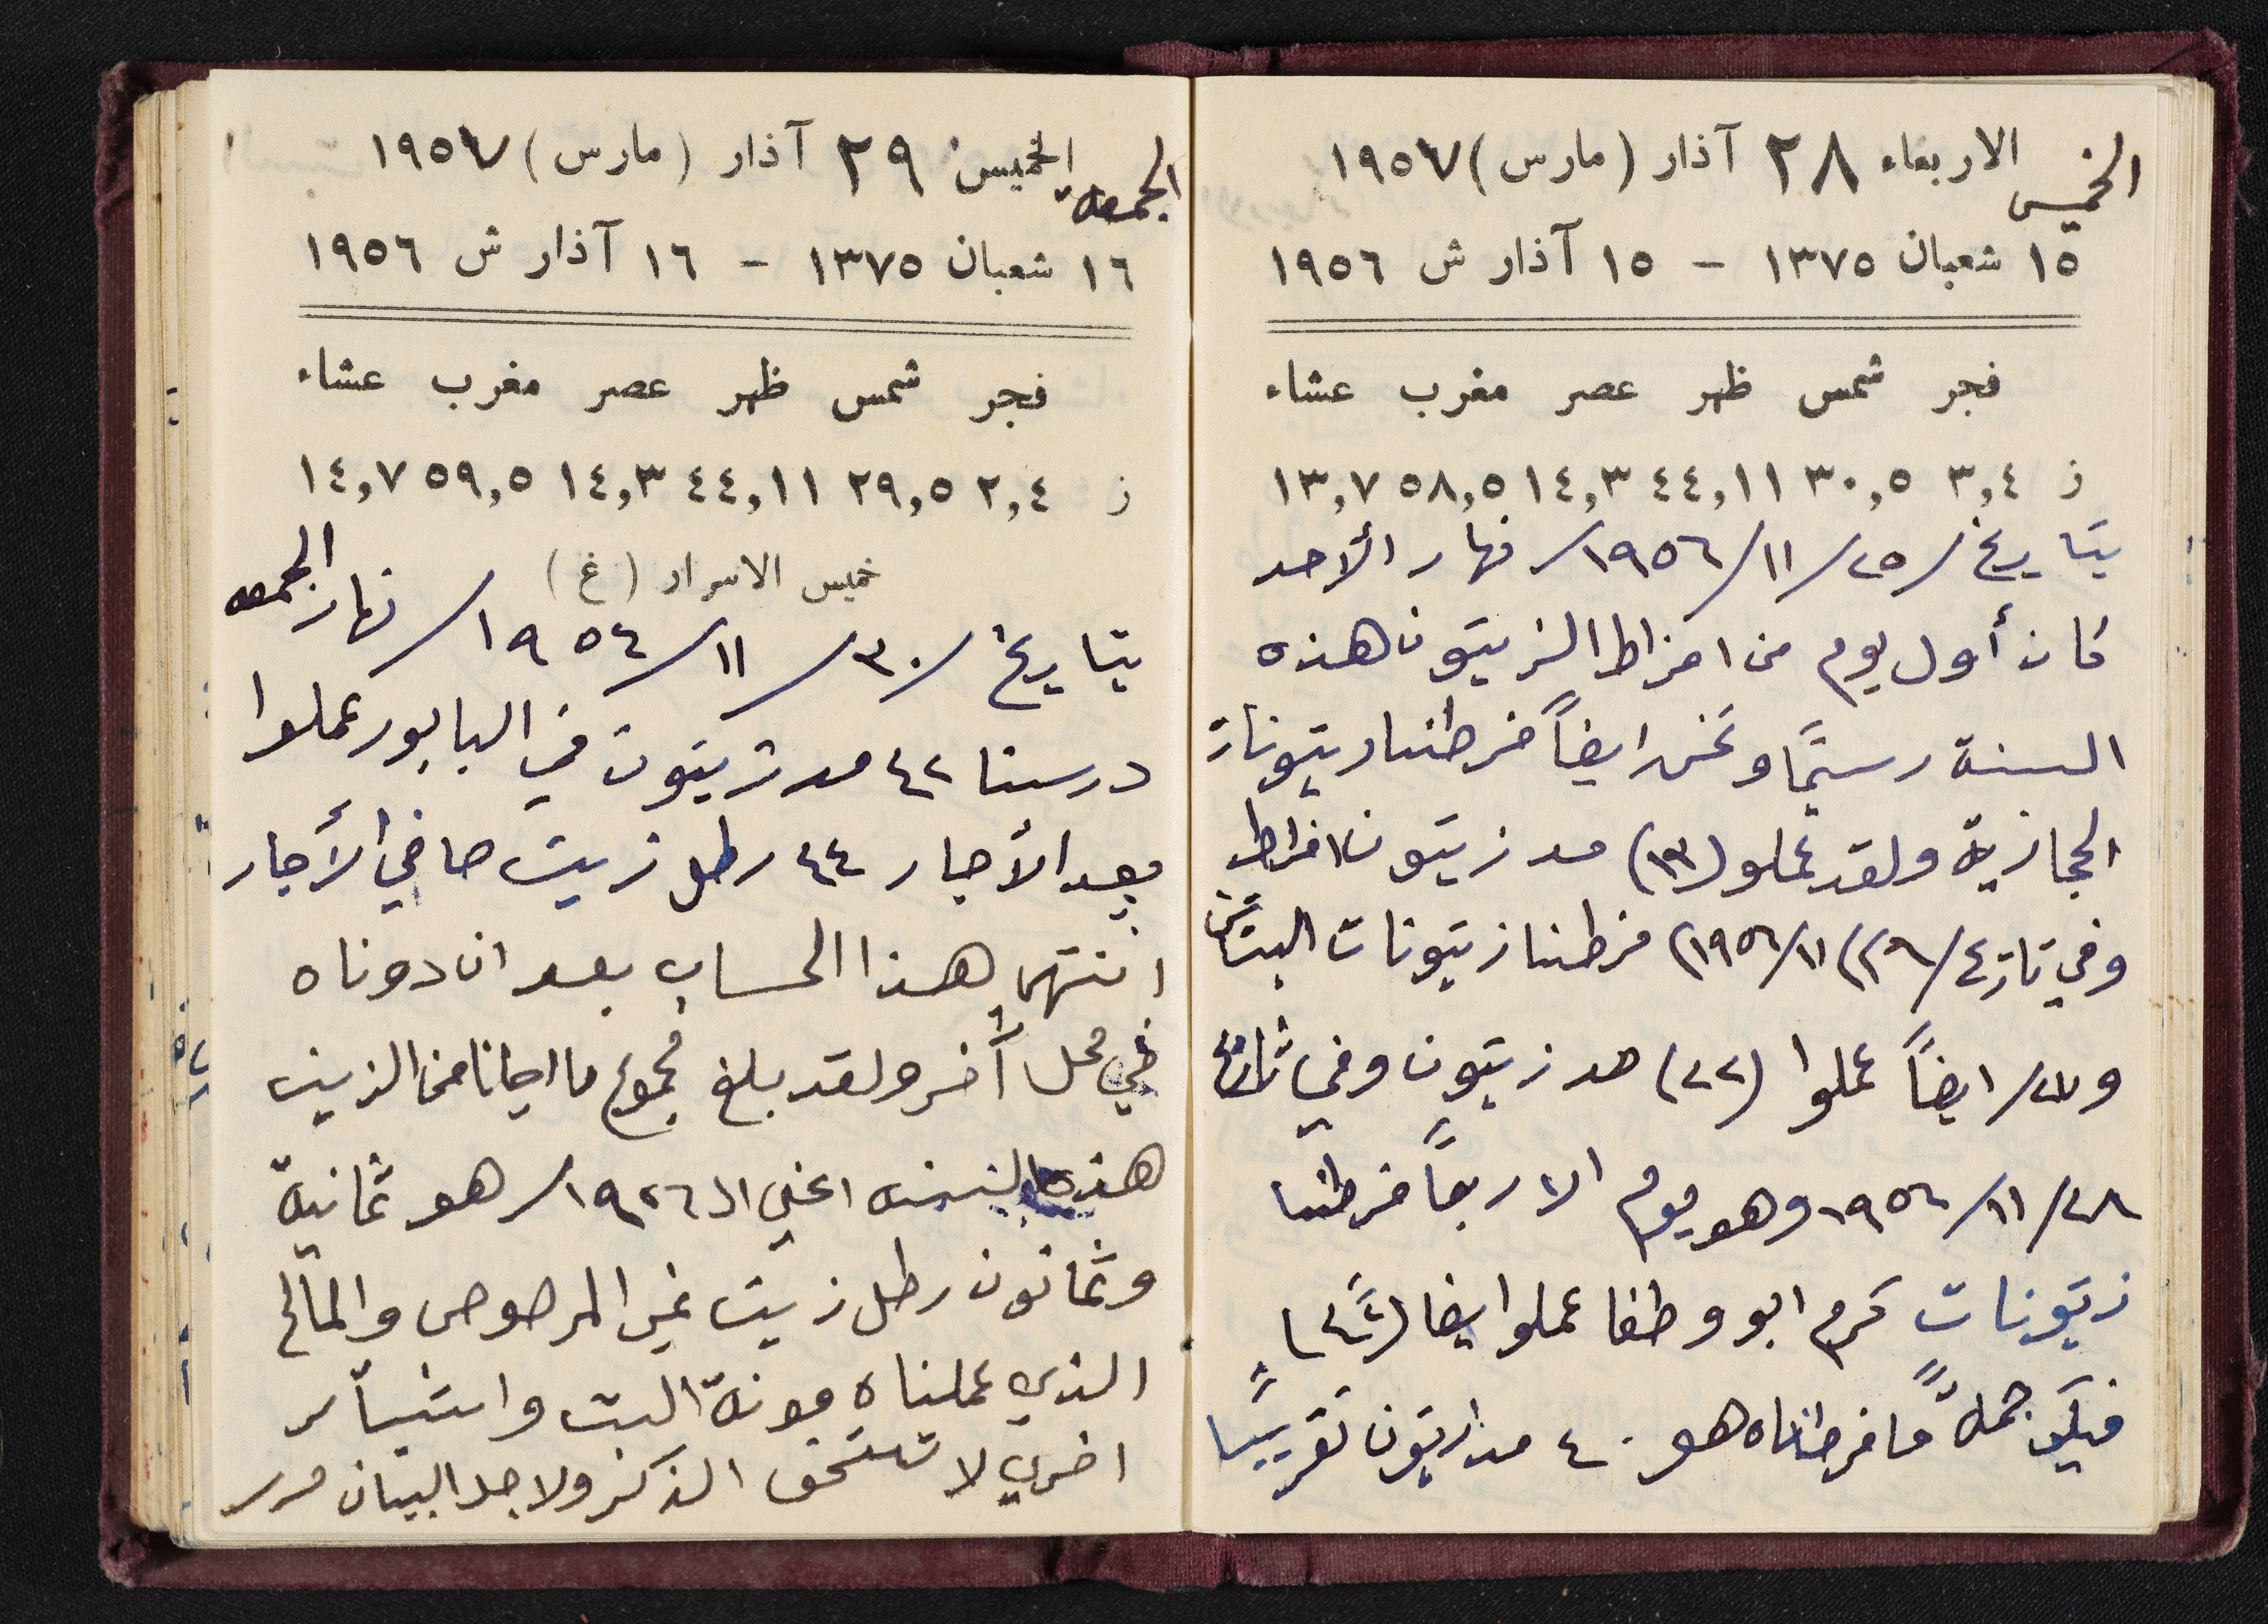 الخميس الاربعاء ٢٨ آذار (مارس) ١٩٥٧
١٥ شعبان ١٣٧٥ – ١٥ آذار ش ١٩٥٦
فجر شمس ظهر عصر مغرب عشاء
ز ٣,٤ ٣٠,٥ ٤٤,١١ ١٤,٣ ٥٨,٥ ١٣,٧
بتاريخ /٢٥/١١/١٩٥٦/ نهار الأحد
كان أول يوم من افراط الزيتون هذه
السنة رسيمًا ونحن ايضاً فرطنا زيتونات
الحجازية ولقد عملو (١٣) مد زيتون افراط
وفي تاريخ /٢٦/١١/١٩٥٦) فرطنا زيتونات البتا
و٢٧/ ايضاً عملوا (٢٢) مد زيتون وفي تاريخ
٢٨/١١/١٩٥٦ وهو يوم الاربعاً فرطنا
زيتونات كرم ابو وطفا عملوا ايضا
فيكو جملةً ما فرطناه هو ٤٠ مد زيتون تقريبًا
الجمعه الخميس ٢٩ آذار (مارس) ١٩٥٧
١٦ شعبان ١٣٧٥ – ١٦ آذار ش ١٩٥٦
فجر شمس ظهر عصر مغرب عشاء
ز ٢,٤ ٢٩,٥ ٤٤,١١ ١٤,٣ ٥٩,٥ ١٤,٧
خميس الاسرار (غ)
بتاريخ /٣٠/١١/١٩٥٦/ نهار الجمعه
درسنا ٤٢ مد زيتون في البابور عملوا
بعد الأجار ٤٤ رطل زيت صافي الأجار
انتهى هذا الحساب بعد ان دوناه
في محل آخر ولقد بلغ مجموع ما اجانا من الزيت
هذه السنه اعني الـ ١٩٢٦/ هو ثمانية
وثمانون رطل زيت غير المرصوص والمالح
الذي عملناه مونة البيت واشيأ
اخرى لا تستحق الذكر ولاجل البيان حرر